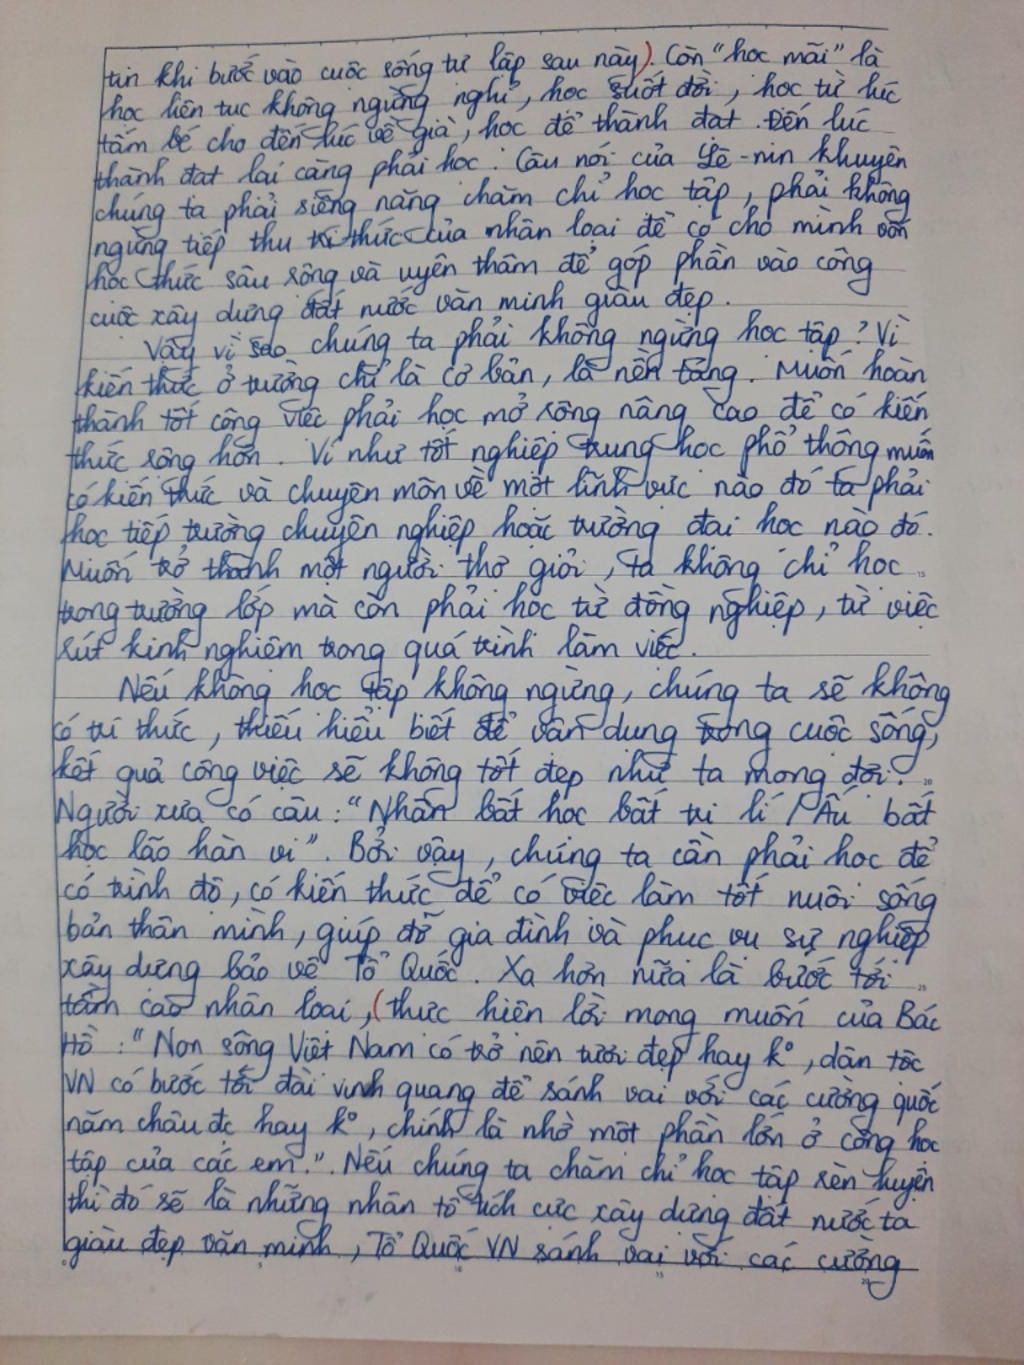 tin khi bước vào cuộc sống tự lập sau này). Còn "học mãi" là
học liên tục không ngừng nghỉ, học suốt đời, học từ lúc
tấm bé cho đến lúc về già, học để thành đạt. Đến lúc
thành đạt lại càng phải học. Câu nói của Lê-nin khuyên
chúng ta phải siêng năng chăm chỉ học tập, phải không
ngừng tiếp thu tri thức của nhân loại để có cho mình vốn
học thức sâu rộng và uyên thâm để góp phần vào công
cuộc xây dựng đất nước văn minh giàu đẹp.
Vậy vì sao chúng ta phải không ngừng học tập? Vì
kiến thức ở trường chỉ là cơ bản, là nền tảng. Muốn hoàn
thành tốt công việc phải học mở rộng nâng cao để có kiến
thức rộng hơn. Ví như tốt nghiệp trung học phổ thông muốn
có kiến thức và chuyên môn về một lĩnh vực nào đó ta phải
học tiếp trường chuyên nghiệp hoặc trường đại học nào đó.
Muốn trở thành một người thợ giỏi, ta không chỉ học
trong trường lớp mà còn phải học từ đồng nghiệp, từ việc
rút kinh nghiệm trong quá trình làm việc.
Nếu không học tập không ngừng, chúng ta sẽ không
có tri thức, thiếu hiểu biết để vận dụng trong cuộc sống,
kết quả công việc sẽ không tốt đẹp như ta mong đợi.
Người xưa có câu: "Nhân bất học bất tri lí / Ấu bất
học lão hàn vi". Bởi vậy, chúng ta cần phải học để
có trình độ, có kiến thức để có việc làm tốt nuôi sống
bản thân mình, giúp đỡ gia đình và phục vụ sự nghiệp
xây dựng bảo vệ Tổ Quốc. Xa hơn nữa là bước tới
tầm cao nhân loại, (thực hiện lời mong muốn của Bác
Hồ: "Non sông Việt Nam có trở nên tươi đẹp hay k°, dân tộc
VN có bước tới đài vinh quang để sánh vai với các cường quốc
năm châu đc hay k°, chính là nhờ một phần lớn ở công học
tập của các em.". Nếu chúng ta chăm chỉ học tập rèn luyện
thì đó sẽ là những nhân tố tích cực xây dựng đất nước ta
giàu đẹp văn minh, Tổ Quốc VN sánh vai với các cường